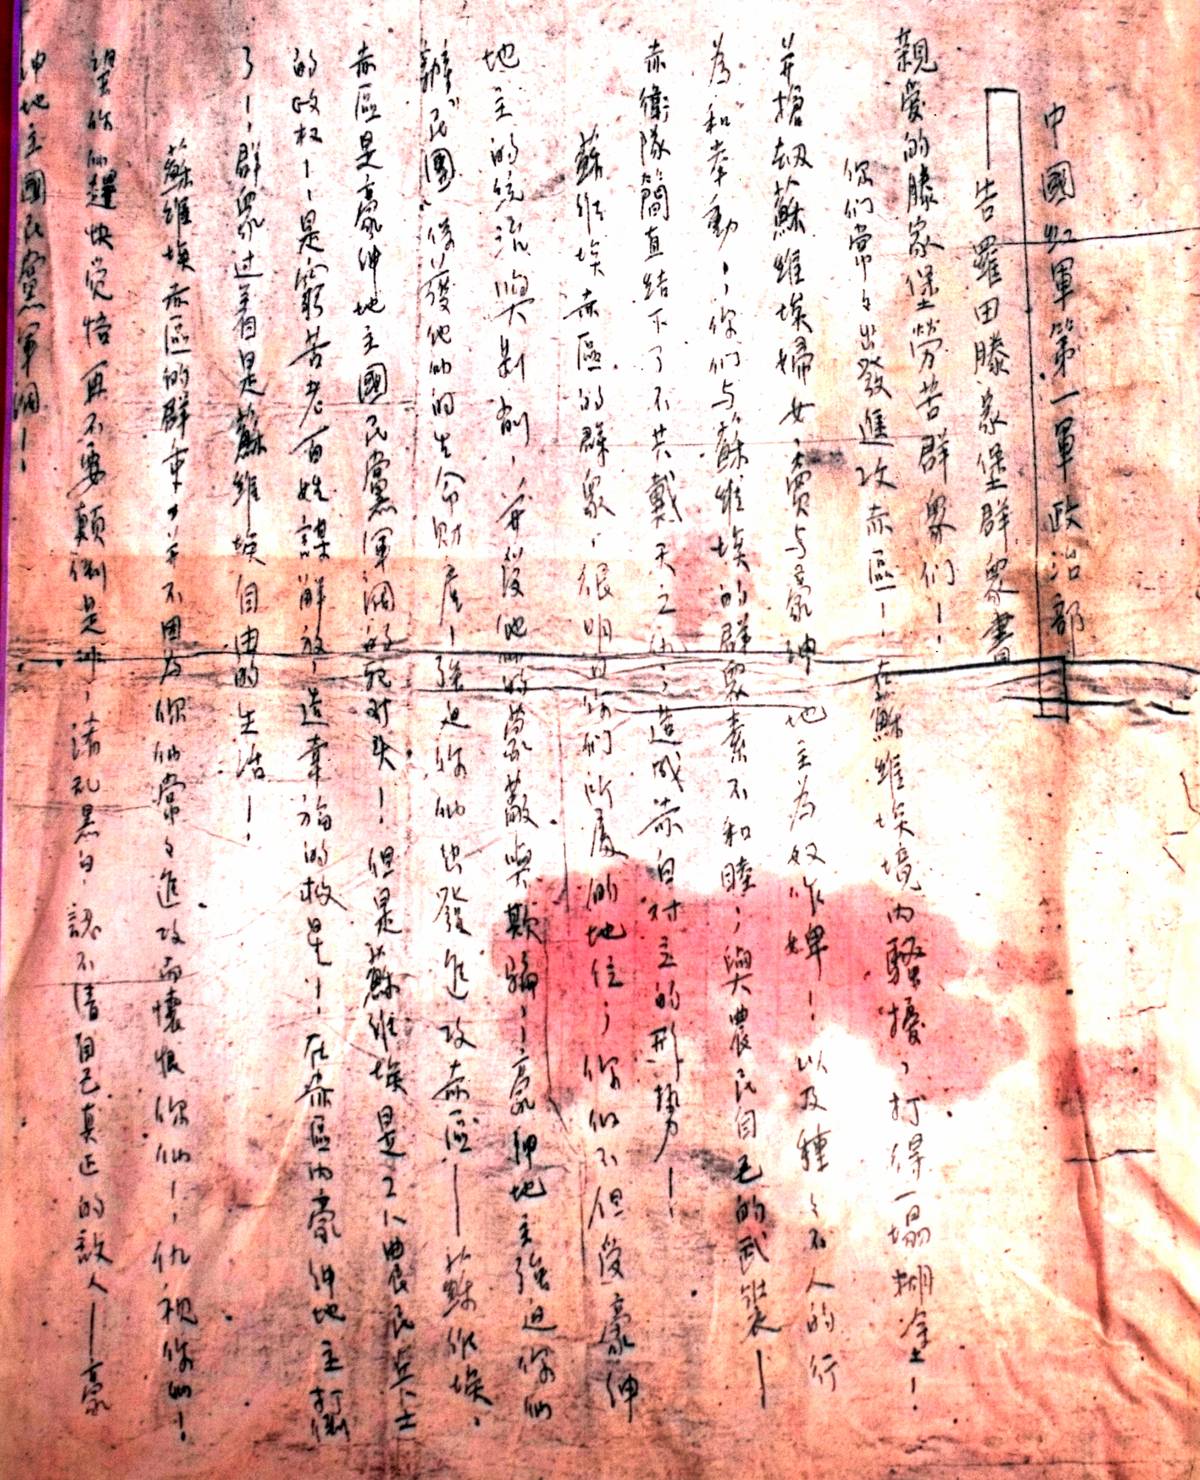 中國紅軍第一軍政治部
告羅田滕家堡群眾書
親愛的滕家堡勞苦群眾们！
你们常々出發進攻赤區！在蘇維埃境內騷擾，打得一塌糊塗！
并搶劫蘇維埃婦女，賣与豪紳地主為奴作婢！以及種々不人的行
為和举動，你们与蘇維埃的群眾素不和睦，與農民自己的武裝——
赤衛隊簡直結下了不共戴天之仇，造成赤白对立的形勢！
蘇維埃赤區的群眾，很明白你们所處的地位，你们不但受豪紳
地主的統治與剥削，并受他们的蒙蔽與欺騙，豪紳地主強迫你们
辦民團，保護他们的生命财產！強迫你们出發進攻赤區——蘇維埃，
赤區是豪紳地主國民黨軍閥的死对头！但是蘇維埃是工人農民兵士
的政权！是窮苦老百姓謀解放，造幸福的救星！在赤區內豪紳地主打倒
了，群眾过着自是蘇維埃自由的生活！
蘇維埃赤區的群眾，并不因为你们常々進攻而懷恨你们！仇視你们！
望你们趕快觉悟再不要顛倒是非，淆乱黑白，認不清自己真正的敵人——豪
紳地主國民黨軍閥！